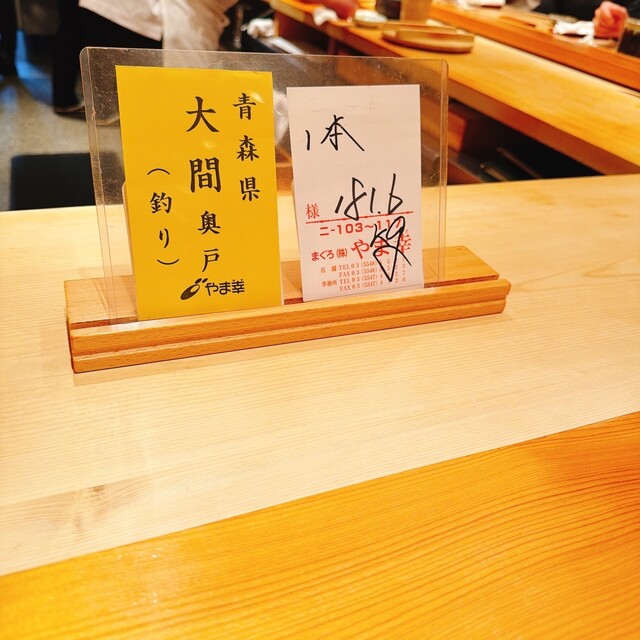 青森県
大間奥戸
（釣り）
やま幸
1本
様 181.6
ニ-103~
まぐろ(株) やま幸
店舗 TEL 03
FAX 03
事務所 TEL 03 (3547)
FAX 03 (3547)